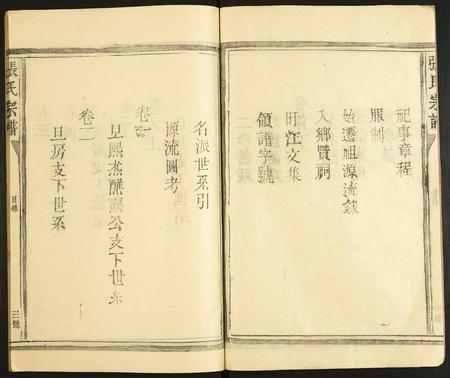 張氏宗譜
祀事章程
服制
始遷祖源流錄
入鄉賢祠
旴江文集
領譜字號
名派世系引
源流圖考
卷一
旦熙杰醮公支下世系
卷二
旦房支下世系
張氏宗譜
目錄
三號